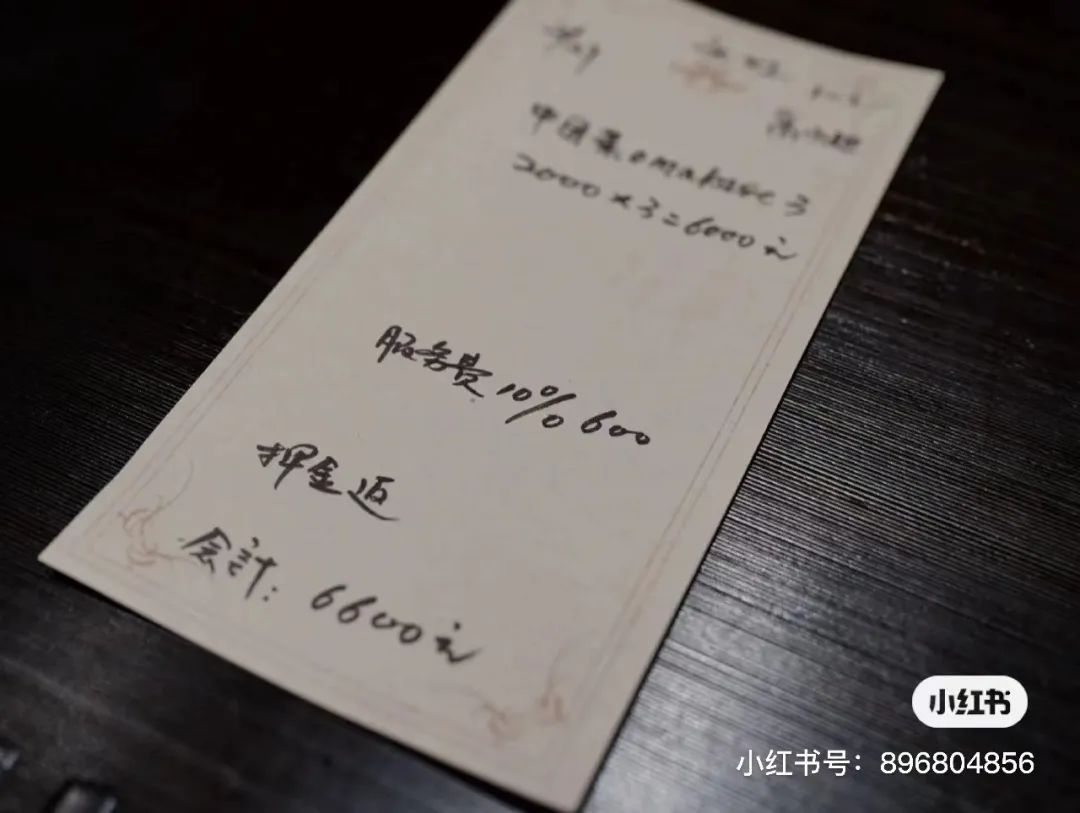 中国菜omakase 3
2000×3=6000元
服务费10% 600
押金返
会計: 6600元
小红书
小红书号: 896804856